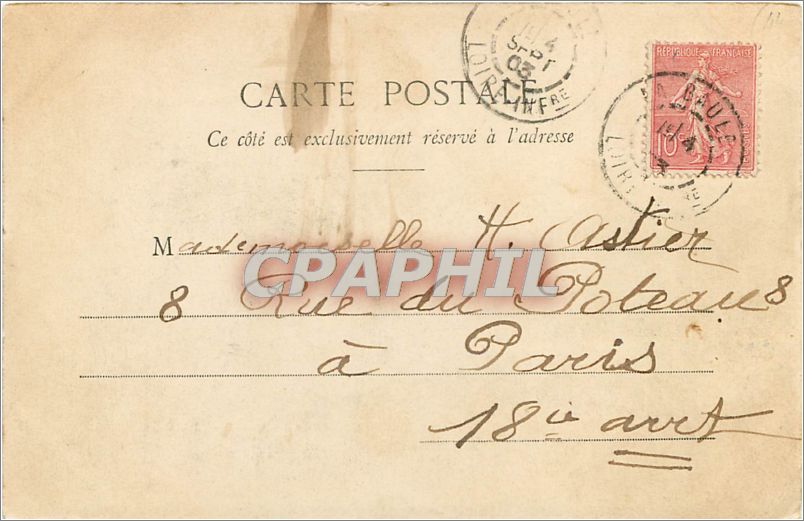 4
SEPT
03
LOIRE INFRE
REPUBLIQUE FRANÇAISE
10
LA BAULE
4
LOIRE
CARTE POSTALE
Ce côté est exclusivement réservé à l'adresse
Mademoiselle H. Astier
CPAPHIL
8 Rue du Poteau 8
à Paris
18ie arrt